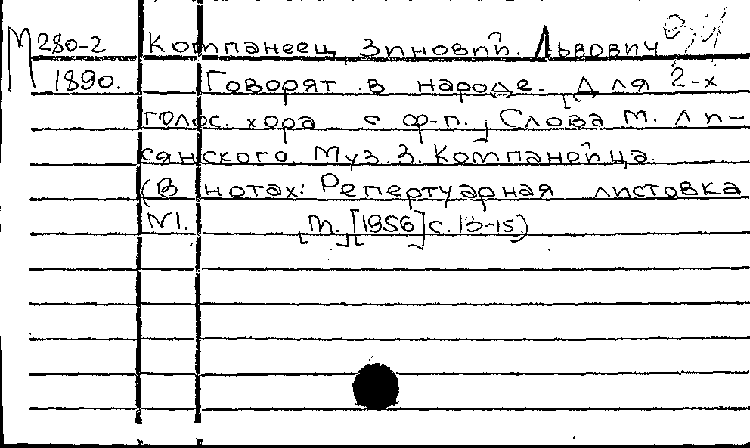 М 280-2 Компанеец, Зиновий Львович
1890. Говорят в народе. Для 2-х
голос. хора с ф-п. Слова М. Ли-
сянского. Муз. З. Компанейца
(В нотах: Репертуарная листовка
№1. М. [1956] с. 10-15)